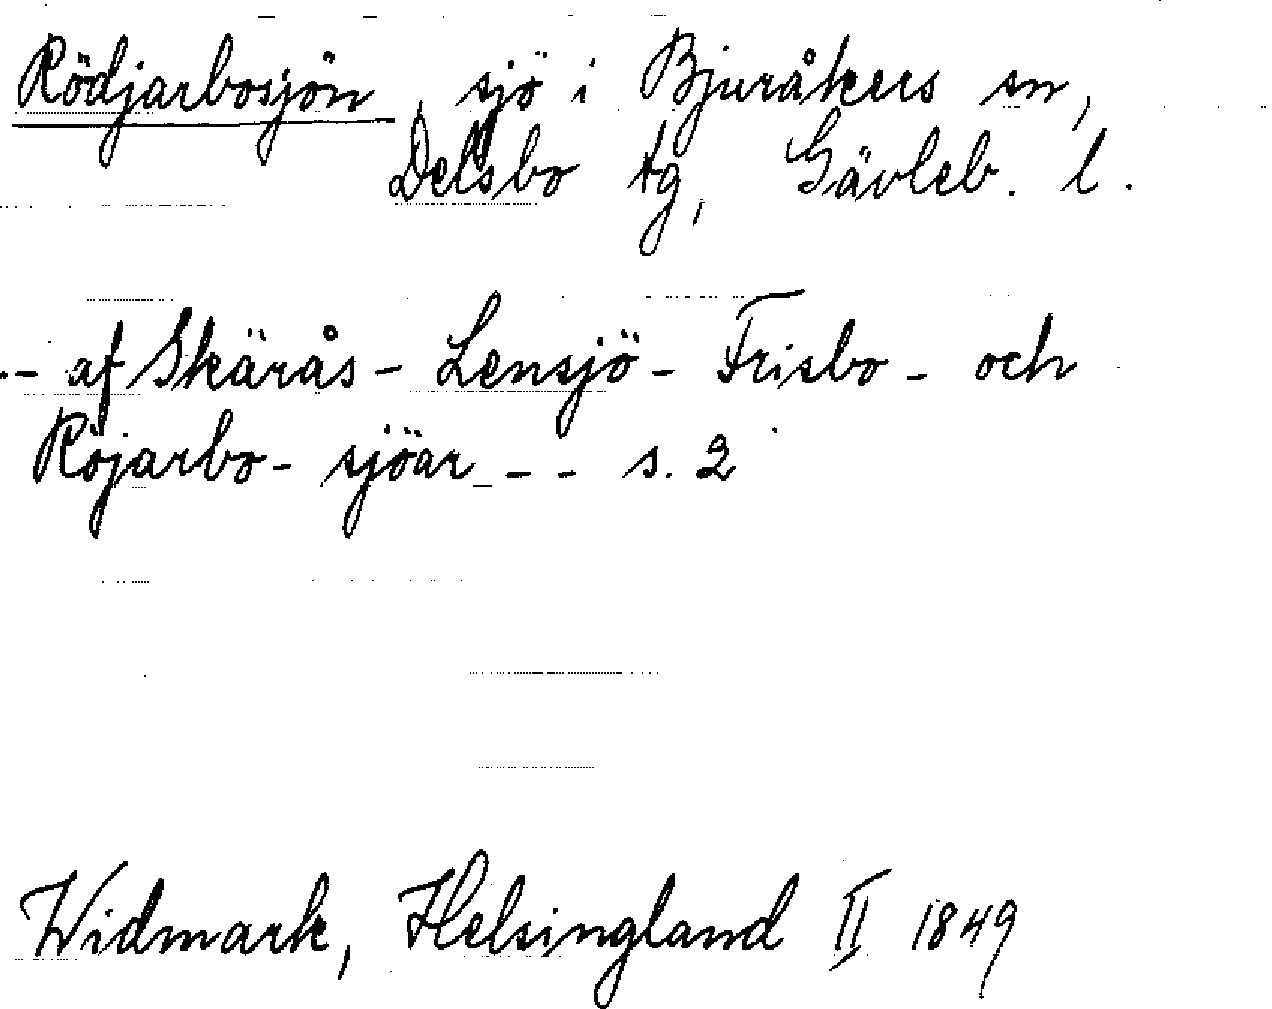 Rödjarbosjön, sjö i Bjuråkers sn,
Delsbo tg, Gävleb. l.
-- af Skärås - Lensjö - Frisbo - och
Röjarbo - sjöar - - s. 2
Widmark, Helsingland II 1849